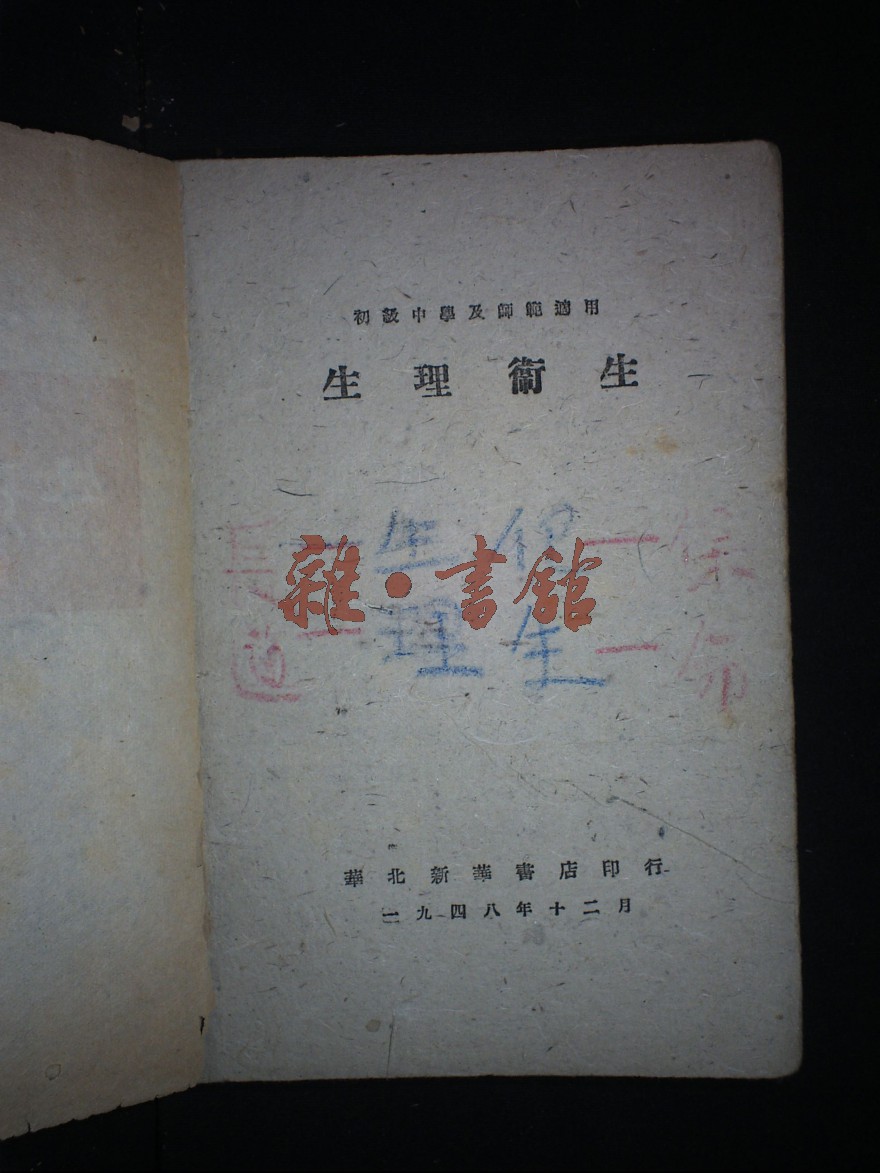 初級中學及師範適用
生理衞生
生
理
生
雜·書館
華北新華書店印行
一九四八年十二月